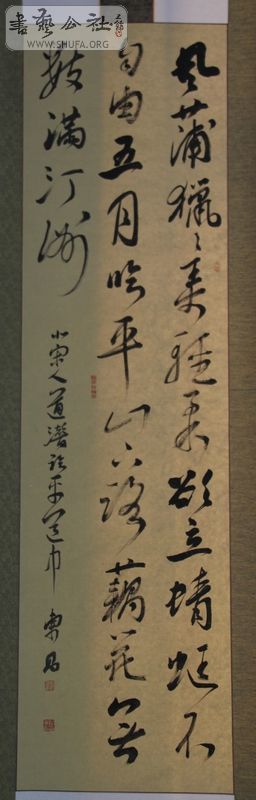 書藝公社
WWW.SHUFA.ORG
風蒲獵獵弄輕柔欲立蜻蜓不
自由五月臨平山下路藕花無
數滿汀洲
宋人道潛臨平道中